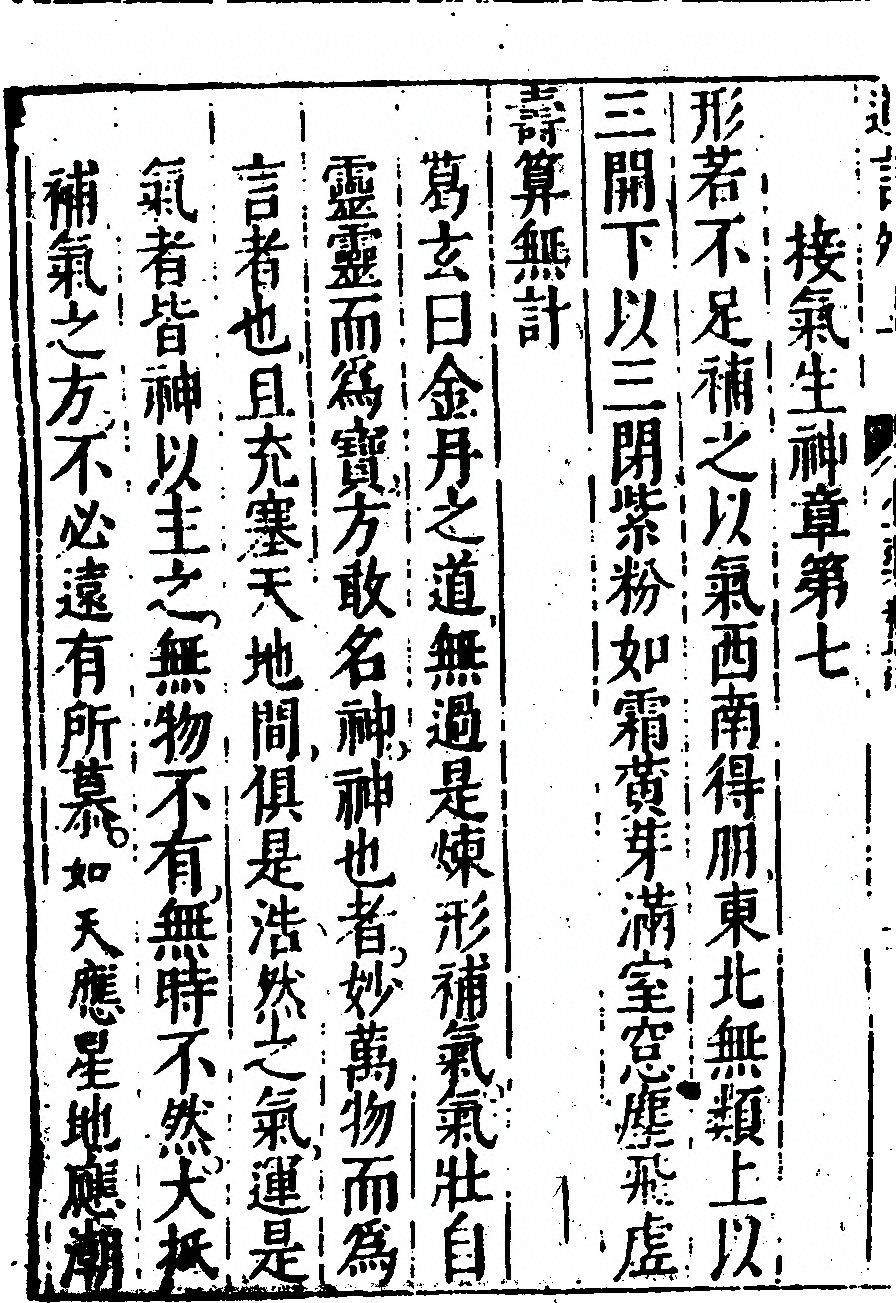 接氣生神章第七
形若不足補之以氣西南得朋東北無類上以
三開下以三閉紫粉如霜黃芽滿室窓塵飛虛
壽算無計
葛玄曰金丹之道無過是煉形補氣氣壯自
靈靈而爲寶方敢名神神也者妙萬物而爲
言者也且充塞天地間俱是浩然之氣運是
氣者皆神以主之無物不有無時不然大抵
補氣之方不必遠有所慕如天應星地應潮